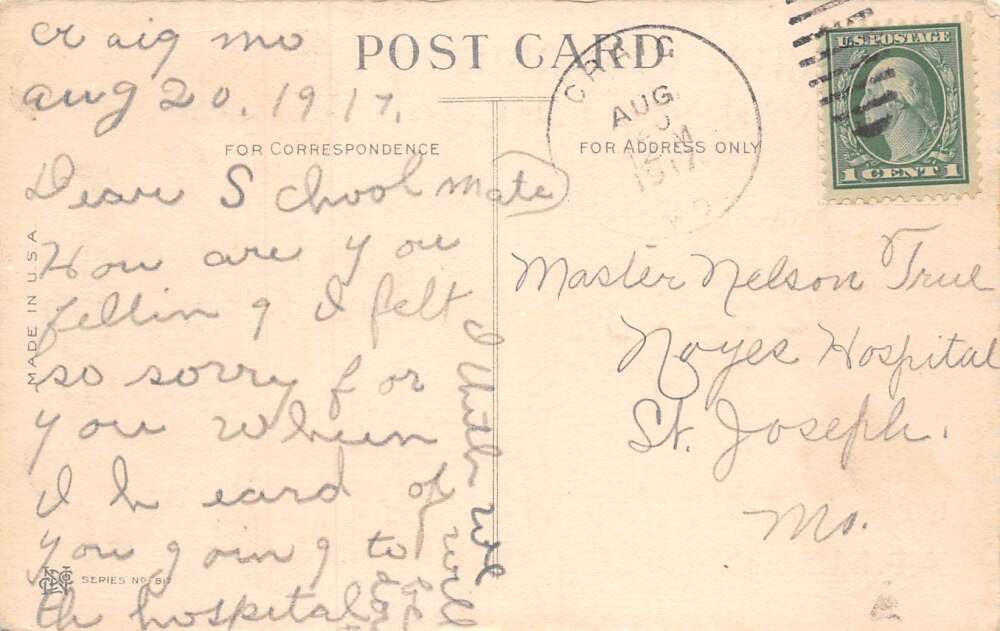 Craig mo
POST CARD
Aug 20, 1917,
FOR CORRESPONDENCE
Dear Schoolmate
How are you
felling I felt
so sorry for
you wheen
I heard of
you going to
th hospital
I think we
will
MADE IN U.S.A
SERIES No. 817
CRAIG
AUG
20
M
1917
MO.
FOR ADDRESS ONLY
U.S. POSTAGE
1 CENT 1
Master Nelson True
Noyes Hospital
St. Joseph.
Mo.